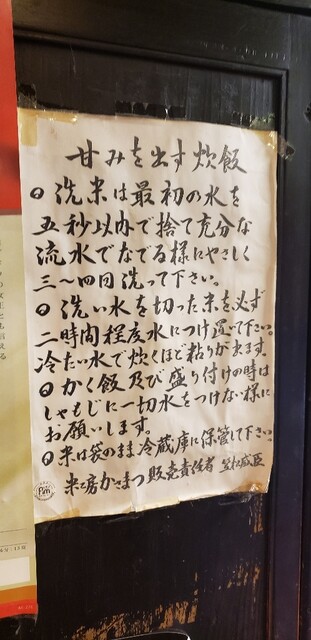 甘みを出す炊飯
○洗米は最初の水を
五秒以内で捨て充分な
流水でなでる様にやさしく
三〜四回洗って下さい。
○洗い水を切った米を必ず
二時間程度水につけ置いて下さい。
冷たい水で炊くほど粘りが出ます。
○かく飯及び盛り付けの時は
しゃもじに一切水をつけない様に
お願いします。
○米は袋のまま冷蔵庫に保管して下さい。
米工房かさまつ 販売責任者 笠松盛臣